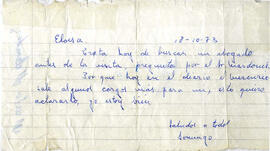 Eloisa. 18-10-73
Trata hoy de buscar un abogado
antes de la visita pregunta por el Sr. Mardones.
Por que hoy en el diario el mercurio
sale algunos cargos mas para mi, esto quiero
aclararlo, yo estoy bien
Saludos a todos
Domingo